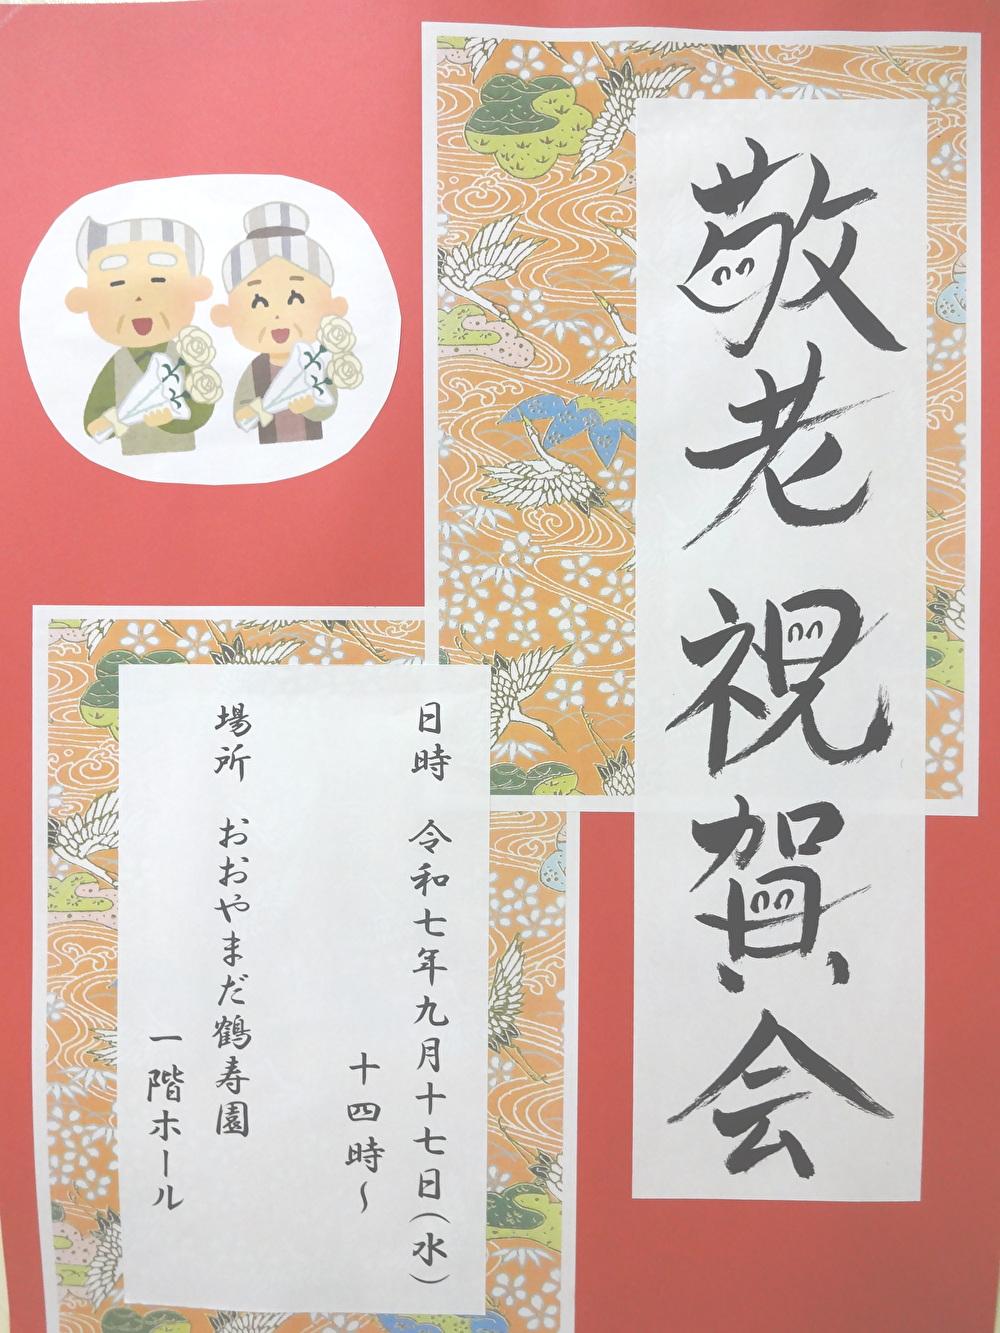 敬老祝賀会
日時　令和七年九月十七日（水）
十四時～
場所　おおやまだ鶴寿園
一階ホール